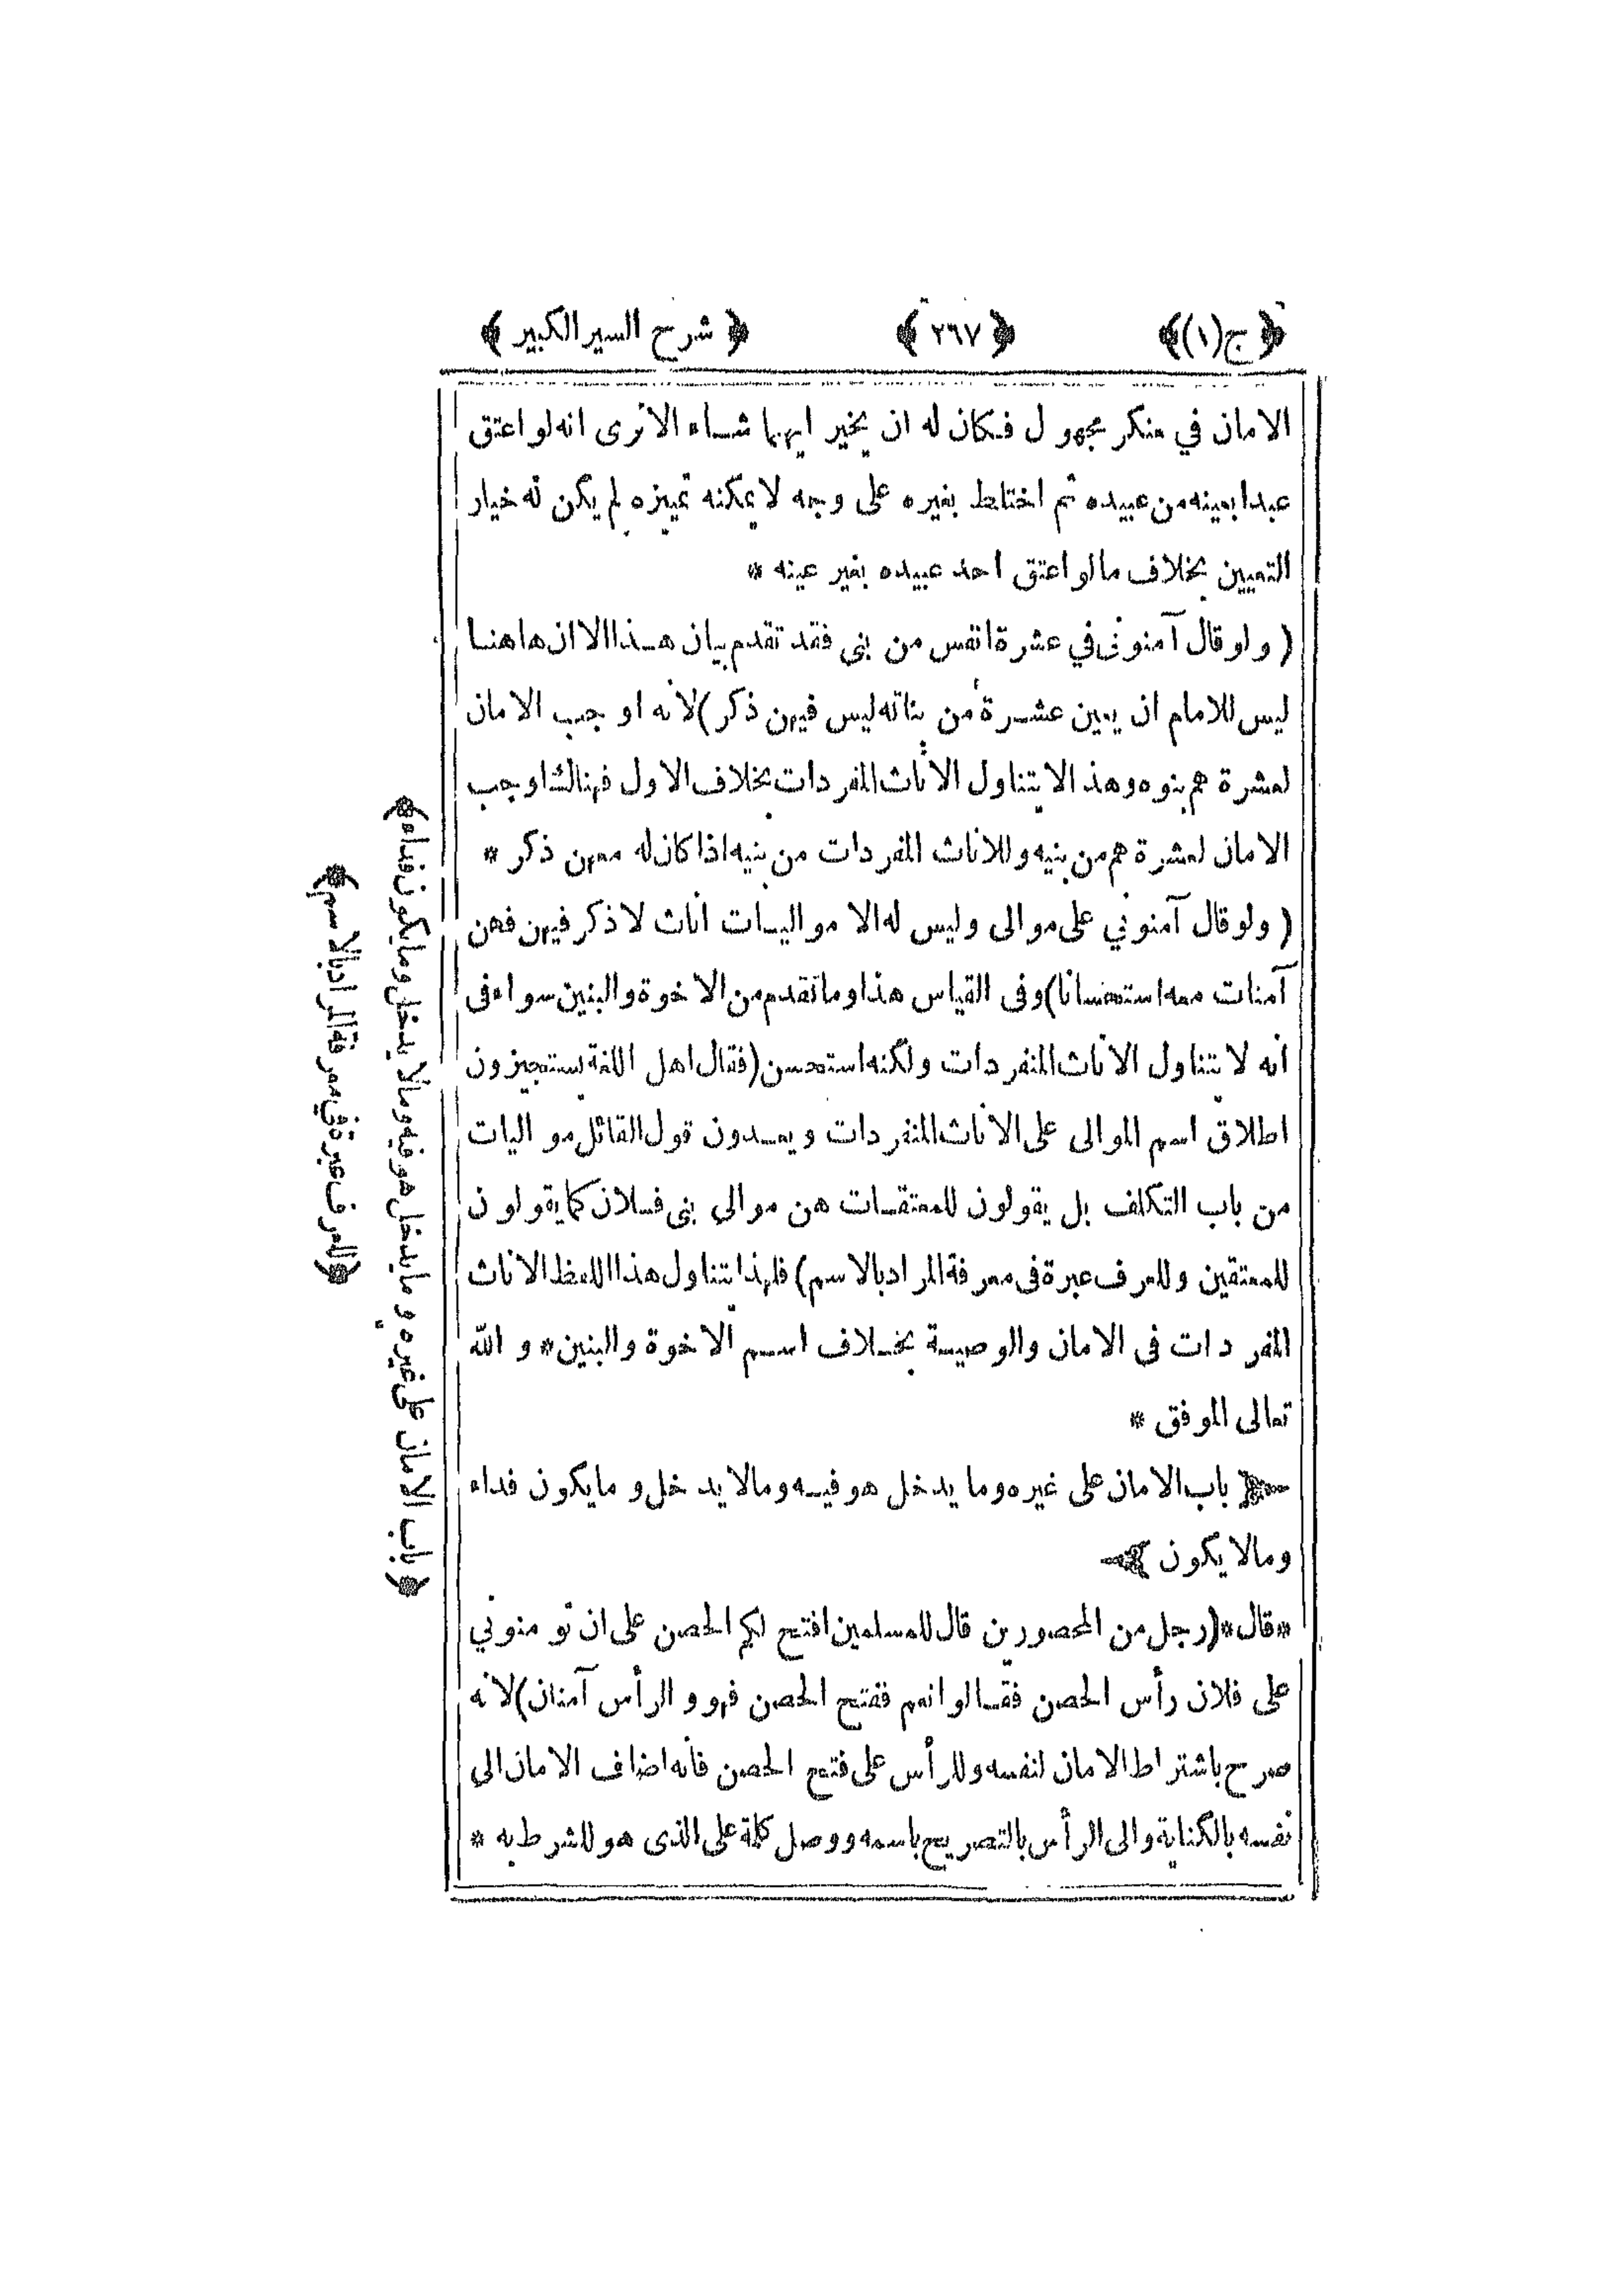 ﴿ ج (١) ﴾ ﴿ ٢٦٧ ﴾ ﴿ شرح السير الكبير ﴾
الامان في منكر مجهول فكان له ان يخير ايهما شاء الا ترى انه لو اعتق
عبدا بعينه من عبيده ثم اختلط بغيره على وجه لا يمكنه تمييزه لم يكن له خيار
التعيين بخلاف ما لو اعتق احد عبيده بغير عينه *
( ولو قال آمنوني في عشرة انفس من بنى فقد تقدم بيان هذا الا ان هاهنا
ليس للامام ان يعين عشرة من بناته ليس فيهن ذكر ) لانه اوجب الامان
لعشرة هم بنوه وهذا لا يتناول الاناث المفردات بخلاف الاول فهناك اوجب
الامان لعشرة هم من بنيه وللاناث المفردات من بنيه اذا كان له معهن ذكر *
( ولو قال آمنوني على موالى وليس له الا مواليات اناث لا ذكر فيهن فهن
آمنات معه استحسانا ) وفى القياس هذا وما تقدم من الاخوة والبنين سواء فى
انه لا يتناول الاناث المنفردات ولكنه استحسن ( فقال اهل اللغة يستجيزون
اطلاق اسم الموالى على الاناث المنفردات ويعدون قول القائل مواليات
من باب التكلف بل يقولون للمعتقات هن موالى بنى فلان كما يقولون
للمعتقين وللعرف عبرة فى معرفة المراد بالاسم ) فلهذا يتناول هذا اللفظ الاناث
المفردات فى الامان والوصية بخلاف اسم الاخوة والبنين * و الله
تعالى الموفق *
باب الامان على غيره وما يدخل هو فيه وما لا يدخل و ما يكون فداء
وما لا يكون
* قال * ( رجل من المحصورين قال للمسلمين افتح لكم الحصن على ان تو منوني
على فلان رأس الحصن فقالوا نعم ففتح الحصن فهو و الرأس آمنان ) لانه
صرح باشتراط الامان لنفسه وللرأس على فتح الحصن فانه اضاف الامان الى
نفسه بالكناية والى الرأس بالتصريح باسمه ووصل كلمة على الذى هو للشرط به *
﴿ باب الامان على غيره و ما يدخل هو فيه وما لا يدخل وما يكون فداء ﴾
﴿ للعرف عبرة في معرفة المراد بالاسم ﴾